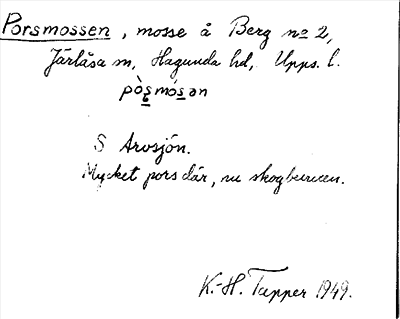 Porsmossen, mosse å Berg no 2,
Järlåsa sn, Hagunda hd, Upps. l.
pòʂmósən
S Arvsjön.
Mycket pors där, nu skogbevuxen.
K.-H. Tapper 1949.